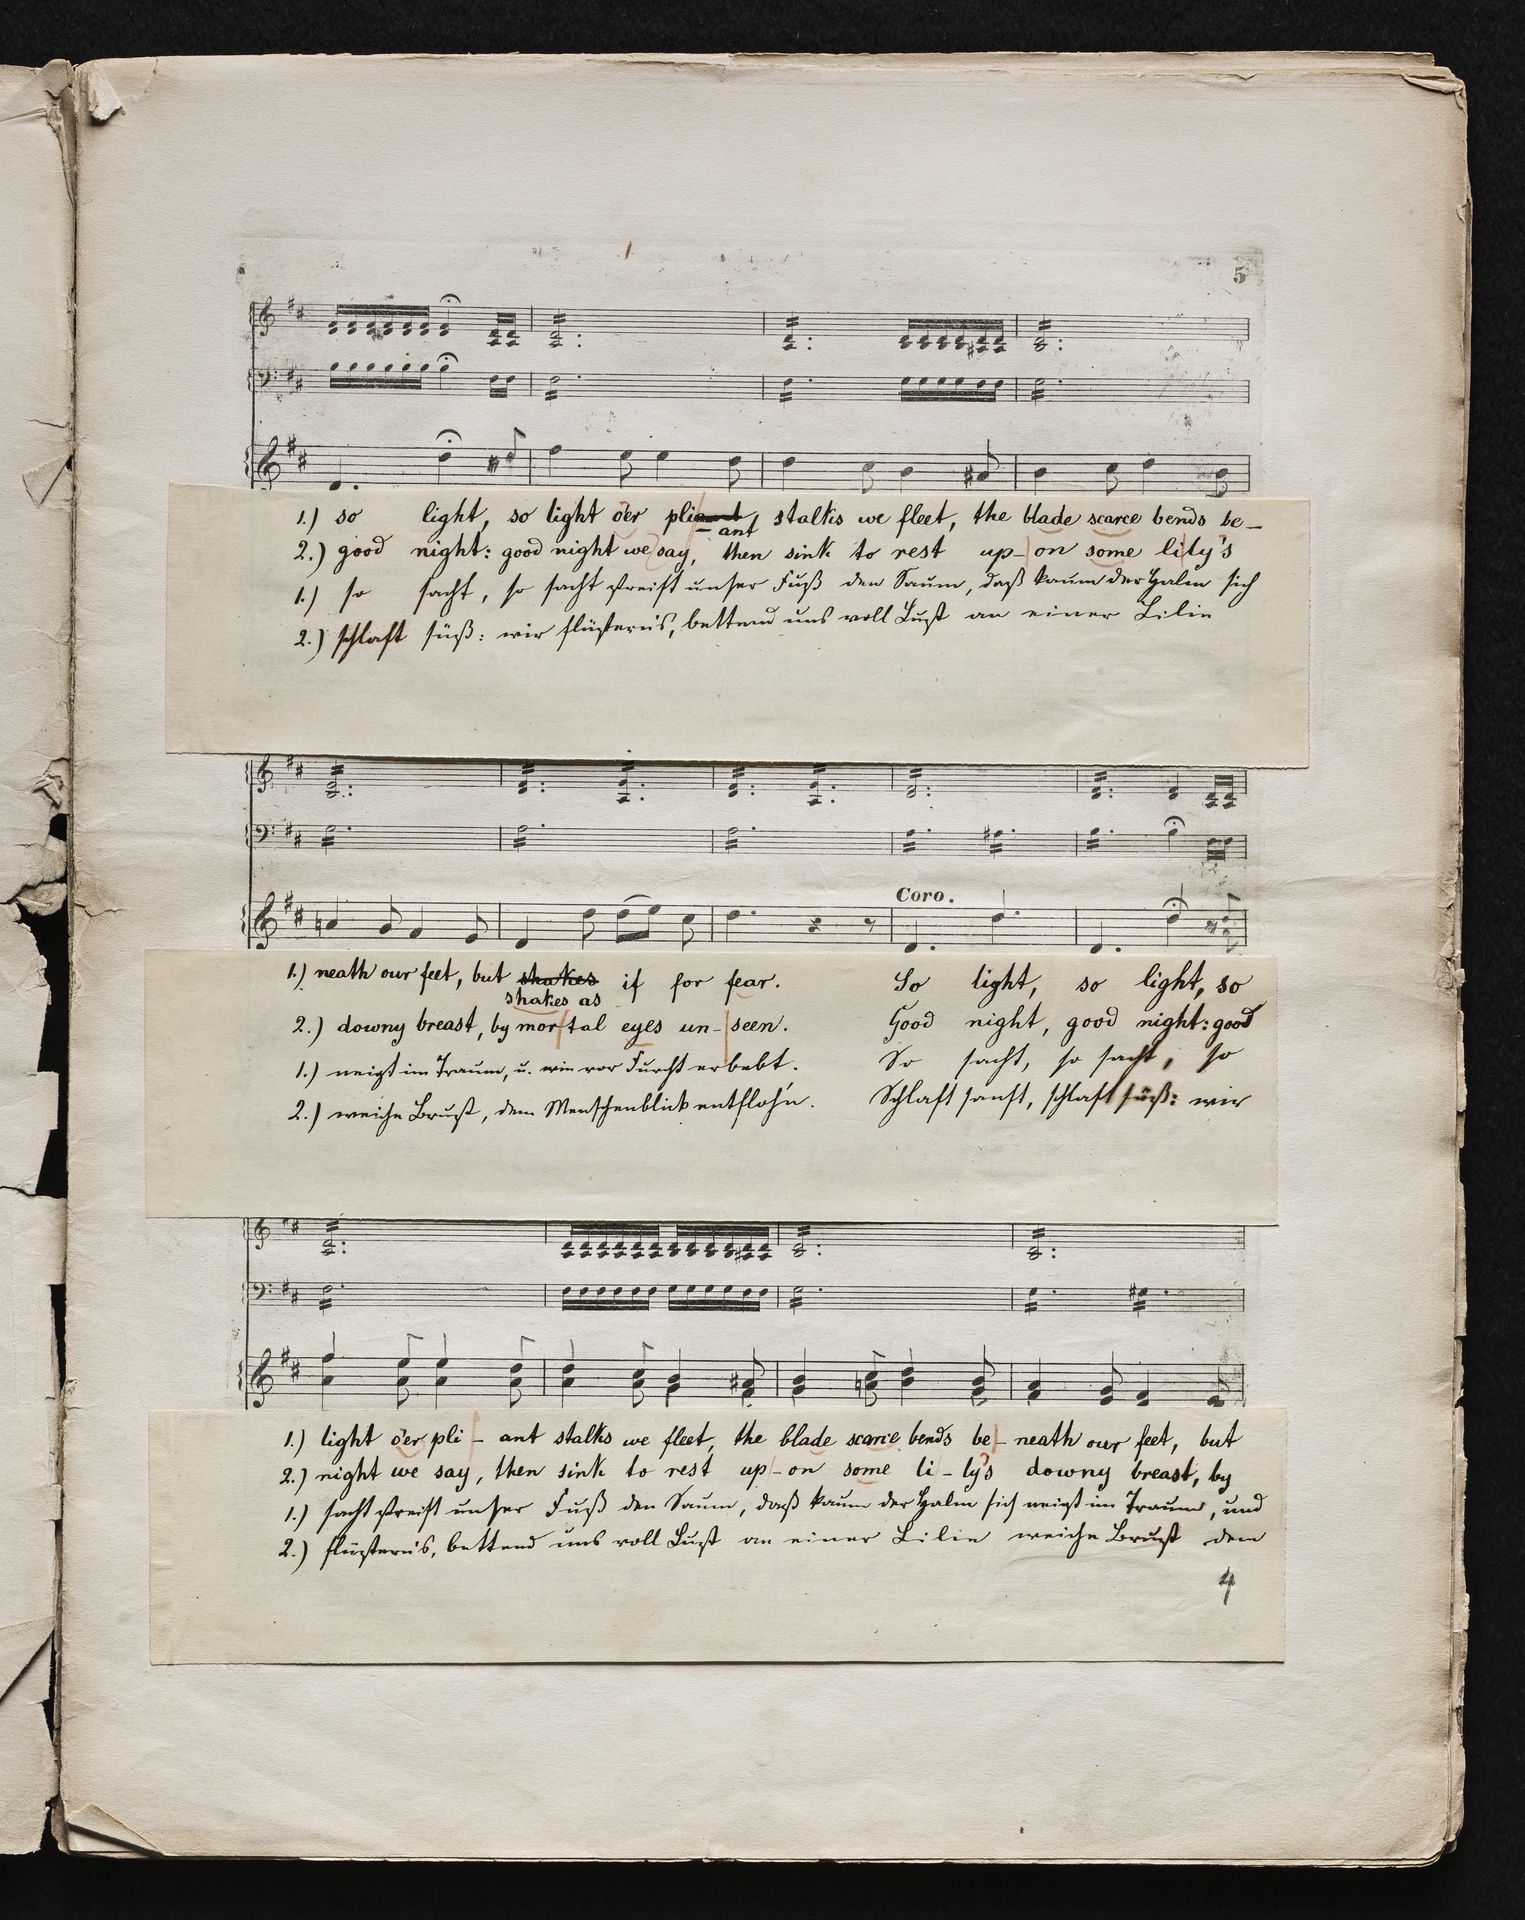 5
1.) so light, so light o'er pliant stalks we fleet, the blade scarce bends be-
-ant
2.) good night: good night we say, then sink to rest up-on some lily's
1.) so sacht, so sacht streift unser Fuß den Saum, daß kaum der Halm sich
2.) schlaft süß: wir flüstern's, bettend uns voll Lust an einer Lilie
Coro.
1.) neath our feet, but shakes if for fear. So light, so light, so
shakes as
2.) downy breast, by mortal eyes un-seen. Good night, good night: good
1.) neigt im Traum, u. wie vor Furcht erbebt. So sacht, so sacht, so
2.) weiche Brust, dem Menschenblick entfloh'n. Schlaft sanft, schlaft süß: wir
1.) light o'er pli-ant stalks we fleet, the blade scarce bends be-neath our feet, but
2.) night we say, then sink to rest up-on some li-ly's downy breast, by
1.) sacht streift unser Fuß den Saum, daß kaum der Halm sich neigt im Traum, und
2.) flüstern's, bettend uns voll Lust an einer Lilie weiche Brust dem
4